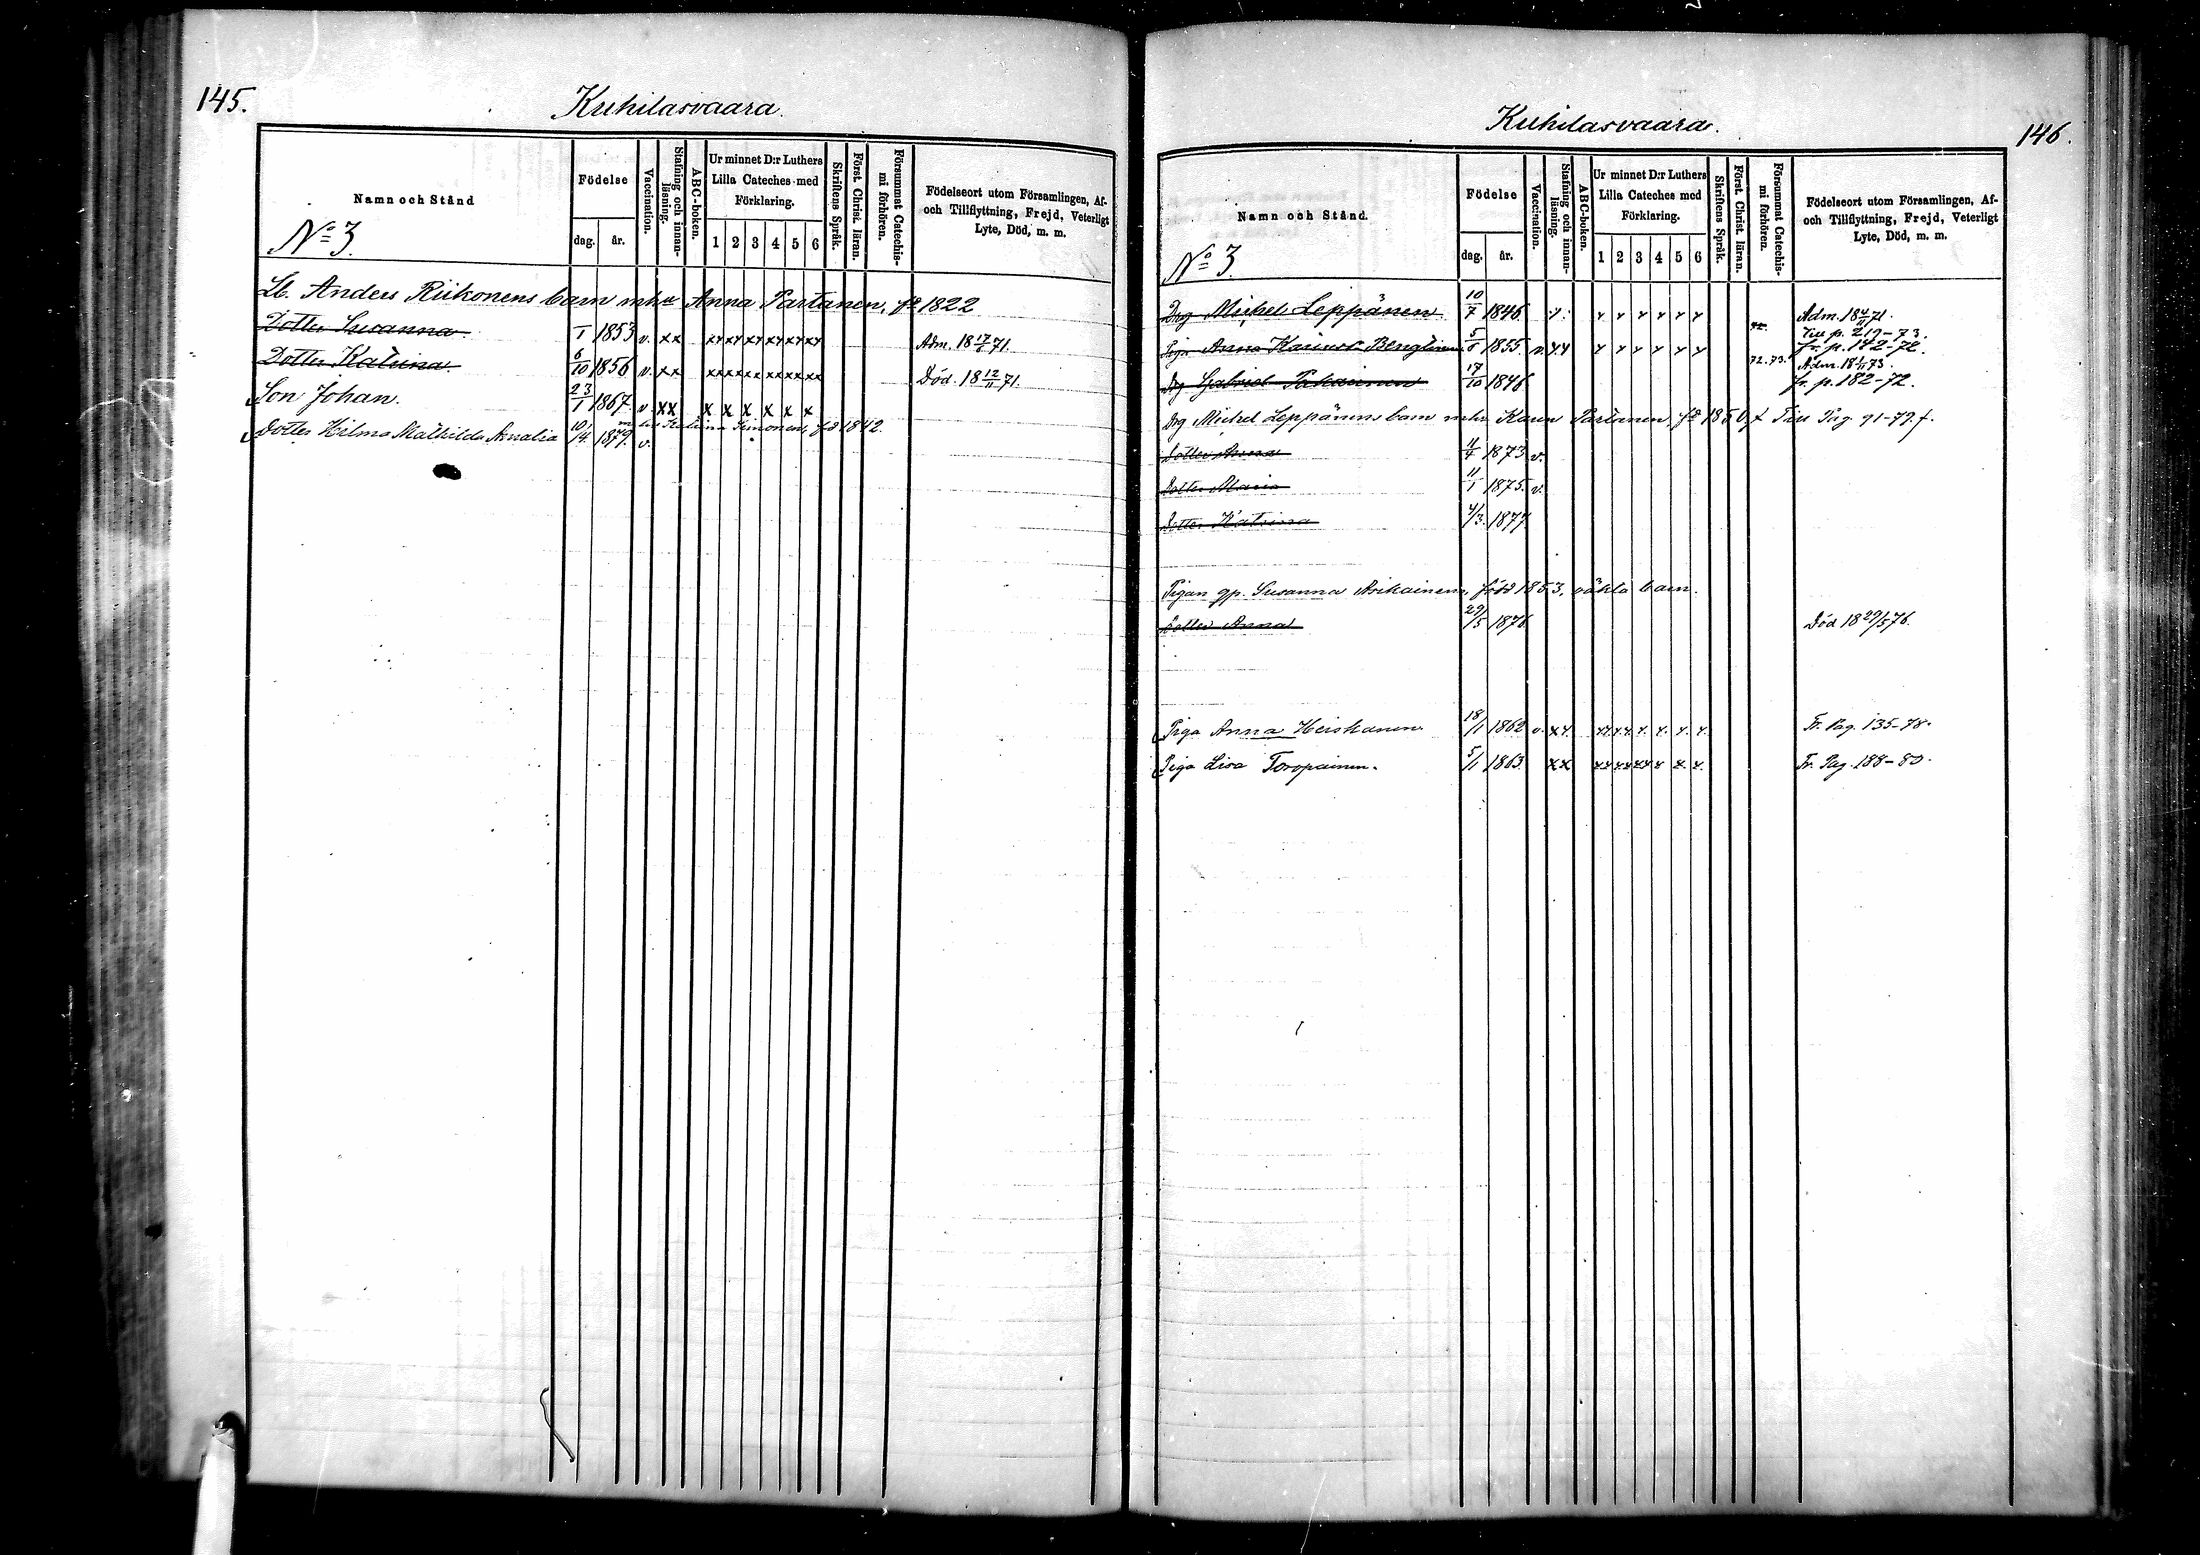 145.
Kuhilasvaara.
Namn och Stånd
No 3.
Födelse
dag.
år.
Vaccination.
Stafning och innanläsning.
ABC-boken.
Ur minnet D:r Luthers
Lilla Cateches med
Förklaring.
1 2 3 4 5 6
Skriftens Språk.
Först. Christ. läran.
Försummat Catechismi förhören.
Födelseort utom Församlingen, Af-
och Tillflyttning, Frejd, Veterligt
Lyte, Död, m. m.
Lb. Anders Riikonens barn mhu Anna Partanen, fd 1822
Dotter Susanna 1853 v. xx Adm. 18 17/6 71.
Dotter Katrina 6/10 1856 v. xx Död. 18 12/11 71.
Son Johan. 23/1 1867. v xx x x x x x x
Katrina Simonen, fd 1842.
Dotter Hilma Mathilda Amalia 10/14 1879. v.
146.
Kuhilasvaara.
Namn och Stånd.
No 3.
Födelse
dag.
år.
Vaccination.
Stafning och innanläsning.
ABC-boken.
Ur minnet D:r Luthers
Lilla Cateches med
Förklaring.
1 2 3 4 5 6
Skriftens Språk.
Först. Christ. läran.
Försummat Catechismi förhören.
Födelseort utom Församlingen, Af-
och Tillflyttning, Frejd, Veterligt
Lyte, Död, m. m.
Drg Michel Leppänen 10/7 1846 Adm. 18 4/11 71.
Till p. 219-73.
Piga Anna Karin 1855. v. 72. fr. p. 142-72.
72. 73. Adm. 73.
Drg Gabriel 17/10 1846 fr. p. 182-72.
Drg Michel Leppänens barn mhu Karin Partanen, fd 1850, † Till Pag. 91-79. †.
Dotter Anna 11/4 1873 v.
Dotter Maria 11/1 1875. v.
Dotter Katrina 4/3. 1877
Pigan gp. Susanna Asikainens, född 1853, oäkta barn.
Dotter Anna 29/5 1876. Död 18 29/5 76.
Piga Anna Heiskanen. 18/1 1862 v. xx. Fr. Pag. 135-78.
Piga Lisa Toropainen. 5/1 1863. xx Fr. Pag. 188-80.